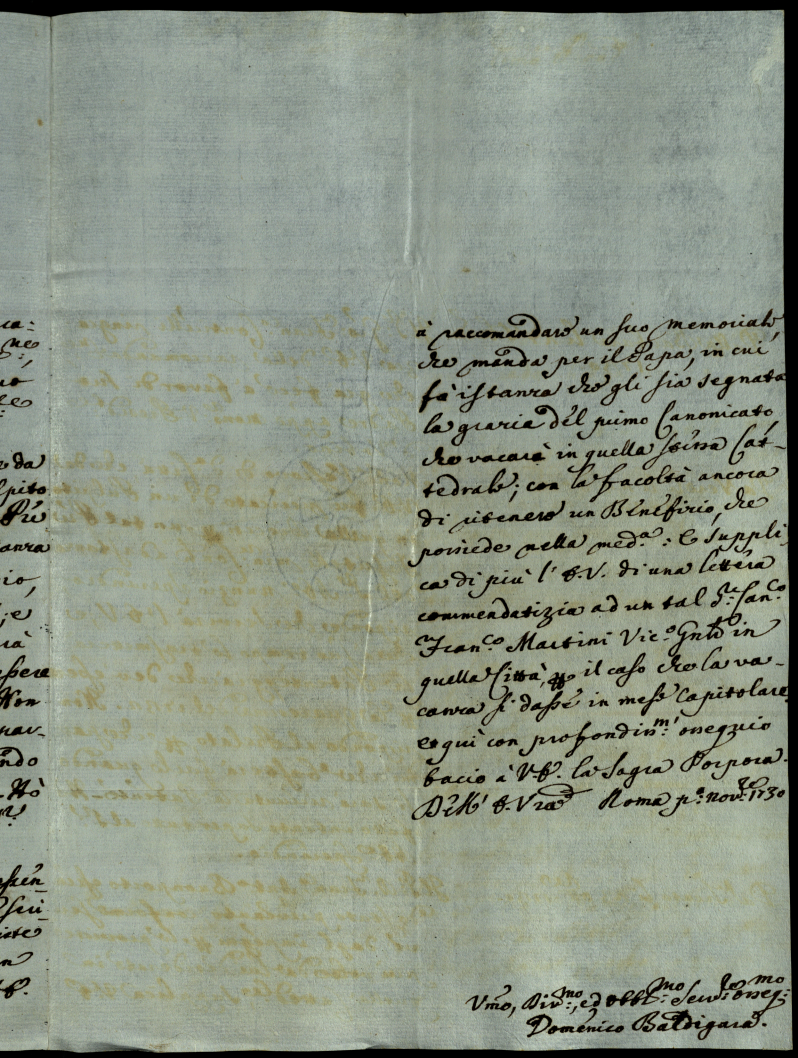 à raccomandare un suo memoriale,
che manda per il Papa, in cui
fà istanza che gli sia segnata
la grazia del primo Canonicato,
che vacarà in quella stessa Cat-
tedrale; con la facoltà ancora
di ritenere un Benefizio, che
possiede nella med.a: E suppli-
ca di più l'E.V. di una lettera
commendatizia ad un tal S.r Can.co
Fran.co Martini Vic.o Gnle in
quella Città, il caso che la va-
canza si dasse in mese Capitolare
e qui con profondiss.mo ossequio
bacio à V.E. la Sagra Porpora.
Dell'E. Vra Roma p.o nov.re 1730
Vmo, Div.mo, ed Obb.mo Ser.re osseq.mo
Domenico Baldigara.
ne
da
pito
anza
io,
rà
ssere
Non
ndo